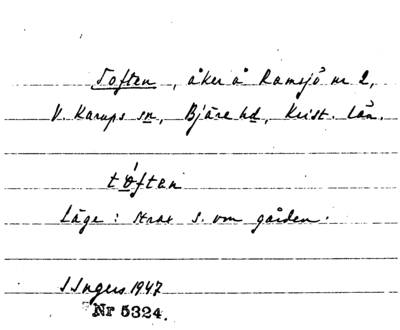 Toften, åker å Ramsjö nr 2,
V. Karups sn, Bjäre hd, Krist. län.
tóftan
Läge: strax s. om gården.
I Ingers 1947
Nr 5324.